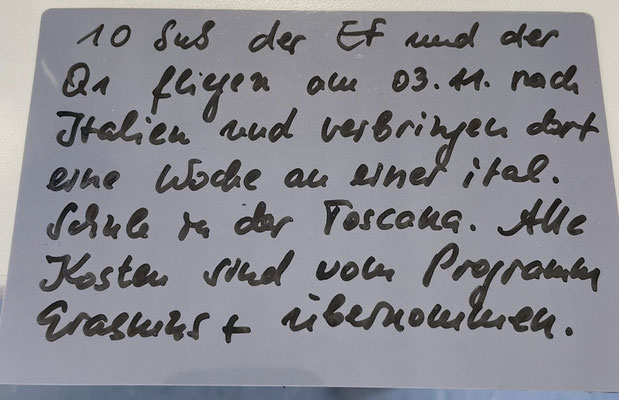 10 SuS der EF und der
Q1 fliegen am 03.11. nach
Italien und verbringen dort
eine Woche an einer ital.
Schule in der Toscana. Alle
Kosten sind vom Programm
Erasmus + übernommen.